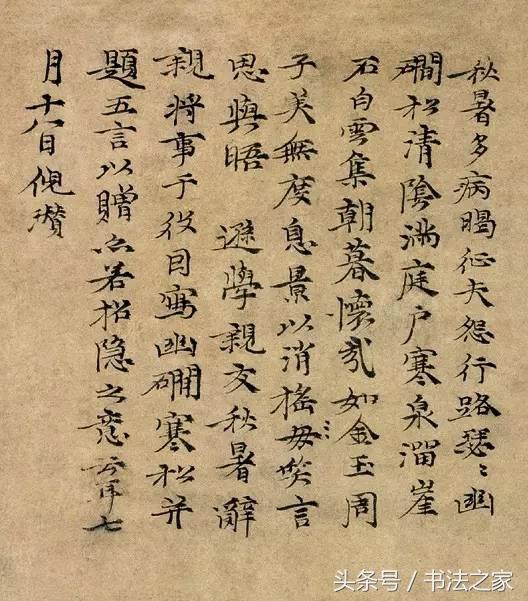 秋暑多病暍征夫怨行路瑟〻幽
磵松清陰滿庭戶寒泉溜崖
石白雲集朝暮懷哉如金玉周
子美無度息景以消搖毋笑言
思與晤 遜學親友秋暑辭
親將事于役因寫幽磵寒松并
題五言以贈亦若招隱之意云耳七
月十八日倪瓚
头条号 / 书法之家